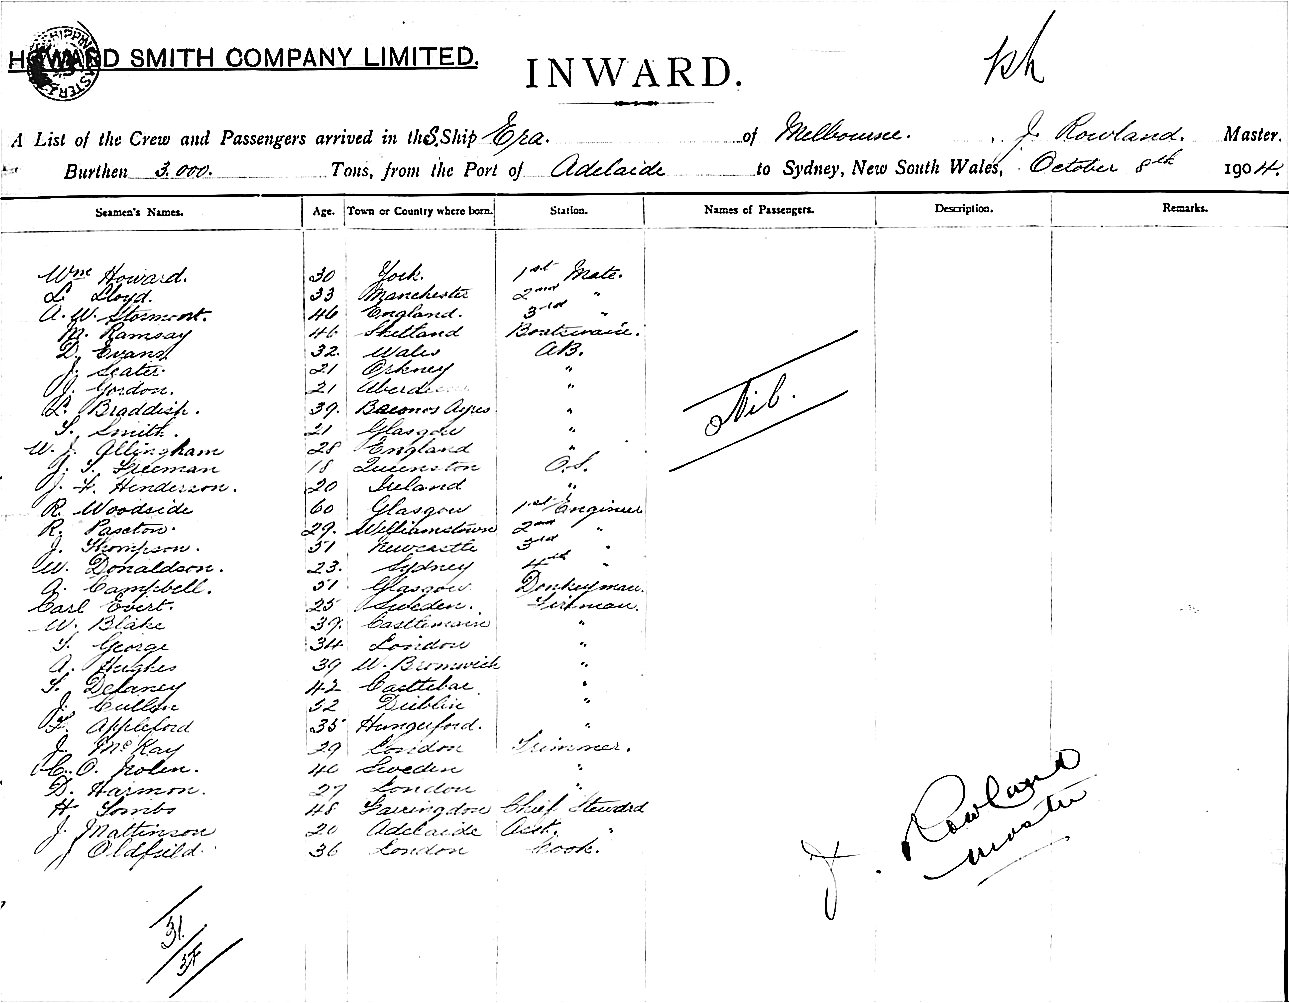 HOWARD SMITH COMPANY LIMITED.
SHIPPING MASTER
INWARD.
A List of the Crew and Passengers arrived in the S. Ship Era. of Melbourne. J. Rowland. Master.
Burthen 3.000. Tons, from the Port of Adelaide to Sydney, New South Wales, October 8th 1904.
Seamen's Names. Age. Town or Country where born. Station. Names of Passengers. Description. Remarks.
Wm Howard. 30 York. 1st Mate.
L. Lloyd. 33 Manchester 2nd "
A. W. Stormont. 46 England. 3rd "
M. Ramsay 46 Shetland Boatswain.
D. Evans 32. Wales A.B.
J. Slater. 21 Orkney "
J. Gordon. 21 Aberdeen "
L. Braddish. 39. Buenos Ayres "
T. Smith. 21 Glasgow "
W. J. Allingham 28 England "
J. T. Freeman 18 Queenston O.S.
J. H. Henderson. 20 Ireland "
R. Woodside 60 Glasgow 1st Engineer
R. Paxton. 29. Williamstown 2nd "
J. Thompson. 51 Newcastle 3rd "
W. Donaldson. 23. Sydney 4th "
A. Campbell. 51 Glasgow Donkeyman.
Carl Evert. 25 Sweden. Fireman.
W. Blake 39. Castlemain "
T. George 34 London "
A. Hughes 39 W. Bromwich "
T. Delaney 42 Castlebar "
J. Cullen 52 Dublin "
F. Appleford 35 Hungerford. "
J. McKay 29 London Trimmer.
C. O. Nolen. 40 Sweden "
D. Harmon. 27 London "
H. Tombs 48 Farringdon Chief Steward
J. Mattinson 20 Adelaide Asst. "
J Oldfield 36 London Cook.
Nil.
J. Rowland
Master
31